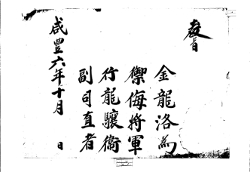 金龍洛為
禦侮將軍
行龍驤衛
副司直者
咸豐六年十月　日